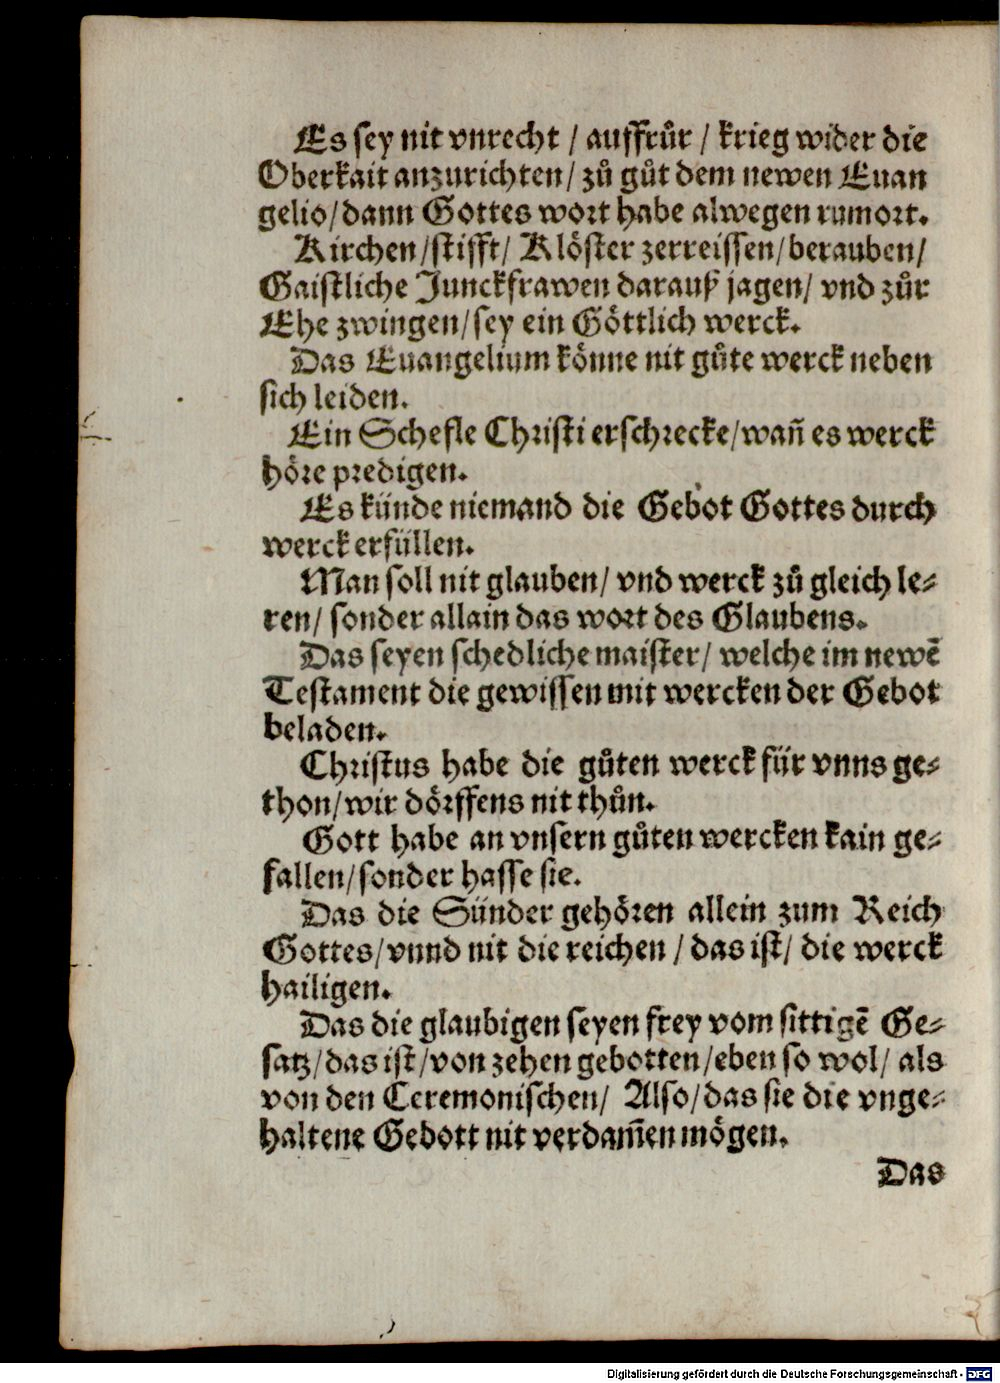 Es sey nit vnrecht / auffrůr / krieg wider die
Oberkait anzurichten / zů gůt dem newen Euan
gelio / dann Gottes wort habe alwegen rumort.
Kirchen / stifft / Klöster zerreissen / berauben /
Gaistliche Junckfrawen darauß jagen / vnd zůr
Ehe zwingen / sey ein Göttlich werck.
Das Euangelium könne nit gůte werck neben
sich leiden.
Ein Schefle Christi erschrecke / wañ es werck
höre predigen.
Es künde niemand die Gebot Gottes durch
werck erfüllen.
Man soll nit glauben / vnd werck zů gleich le⸗
ren / sonder allain das wort des Glaubens.
Das seyen schedliche maister / welche im newē
Testament die gewissen mit wercken der Gebot
beladen.
Christus habe die gůten werck für vnns ge⸗
thon / wir dörffens nit thůn.
Gott habe an vnsern gůten wercken kain ge⸗
fallen / sonder hasse sie.
Das die Sünder gehören allein zum Reich
Gottes / vnnd nit die reichen / das ist / die werck
hailigen.
Das die glaubigen seyen frey vom sittigē Ge⸗
satz / das ist / von zehen gebotten / eben so wol / als
von den Ceremonischen / Also / das sie die vnge⸗
haltene Gebott nit verdam̄en mögen.
Das
Digitalisierung gefördert durch die Deutsche Forschungsgemeinschaft - DFG